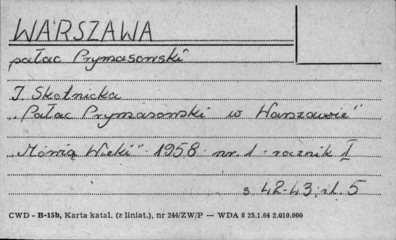 WARSZAWA
pałac Prymasowski
J. Skotnicka
„Pałac Prymasowski w Warszawie"
„Mówią Wieki" 1958 nr. 1 rocznik I
s. 42-43, il. 5
CWD - B-15b, Karta katal. (z liniat.), nr 244/ZW/P — WDA 8 25.1.64 2.010.000